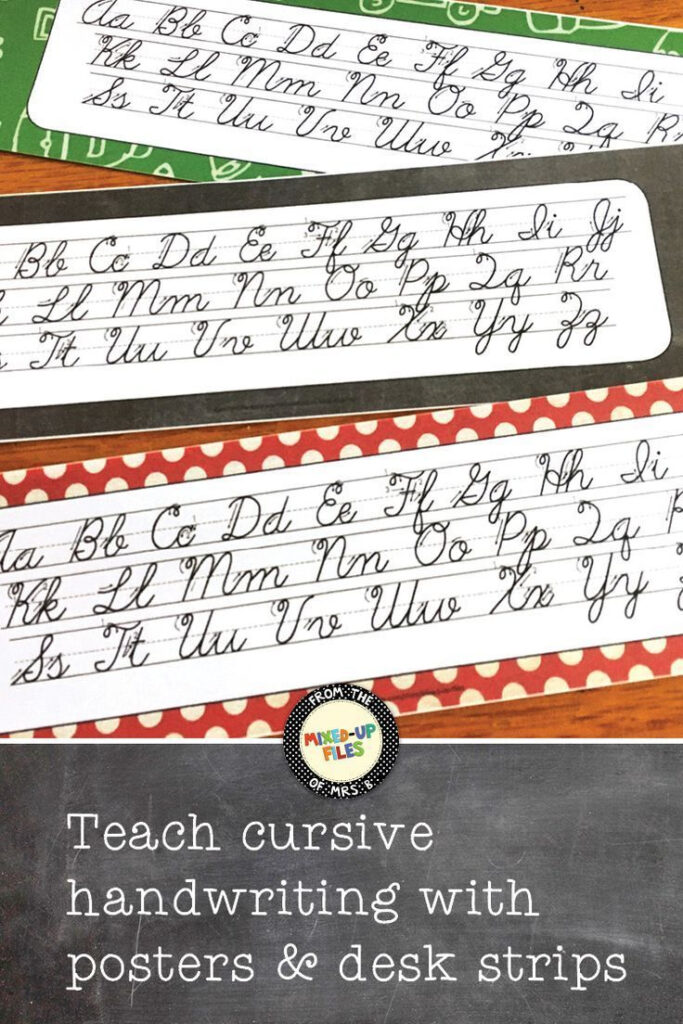 Aa Bb Cc Dd Ee Ff Gg Hh Ii
Kk Ll Mm Nn Oo Pp Qq R
Ss Tt Uu Vv Ww Xx
Bb Cc Dd Ee Ff Gg Hh Ii Jj
Ll Mm Nn Oo Pp Qq Rr
Tt Uu Vv Ww Xx Yy Zz
Aa Bb Cc Dd Ee Ff Gg Hh Ii
Kk Ll Mm Nn Oo Pp Qq
Ss Tt Uu Vv Ww Xx Yy
FROM THE
MIXED-UP
FILES
OF MRS. B
Teach cursive
handwriting with
posters & desk strips